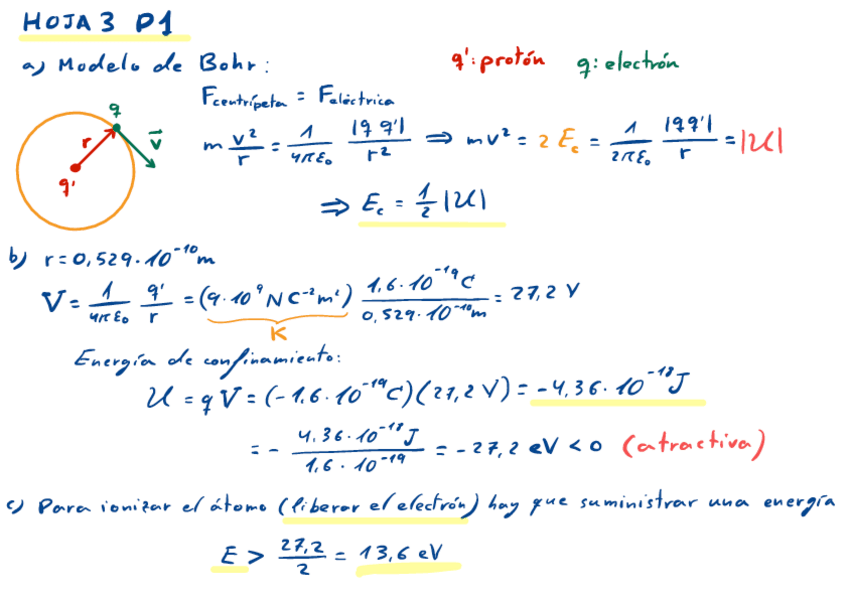 HOJA 3 P1
a) Modelo de Bohr: q': protón q: electrón
F centrípeta = F eléctrica
q r v⃗ q'
m v²/r = 1/(4πε₀) |q q'|/r² ⇒ mv² = 2 E_c = 1/(2πε₀) |q q'|/r = |U|
⇒ E_c = 1/2 |U|
b) r = 0,529·10⁻¹⁰ m
V = 1/(4πε₀) q'/r = (9·10⁹ N C⁻² m²) 1,6·10⁻¹⁹ C / 0,529·10⁻¹⁰ m = 27,2 V
K
Energía de confinamiento:
U = q V = (-1,6·10⁻¹⁹ C)(27,2 V) = -4,36·10⁻¹⁸ J
= - 4,36·10⁻¹⁸ J / 1,6·10⁻¹⁹ = -27,2 eV < 0 (atractiva)
c) Para ionizar el átomo (liberar el electrón) hay que suministrar una energía
E > 27,2/2 = 13,6 eV